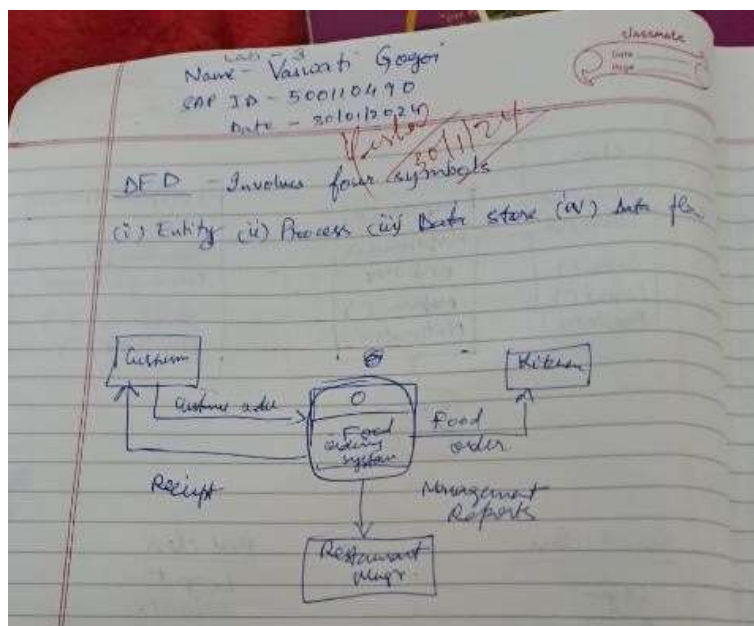 classmate
Date
Page
Lab - 3
Name - Vaswati Gogoi
SAP ID - 500110490
Date - 30/01/2024
30/1/24
DFD - Involves four symbols
(i) Entity (ii) Process (iii) Data store (iv) Data flo
Kitchen
Customer order
0
Food
ordering
system
Food
order
Reciept
Management
Reports
Restaurant
Mngr.